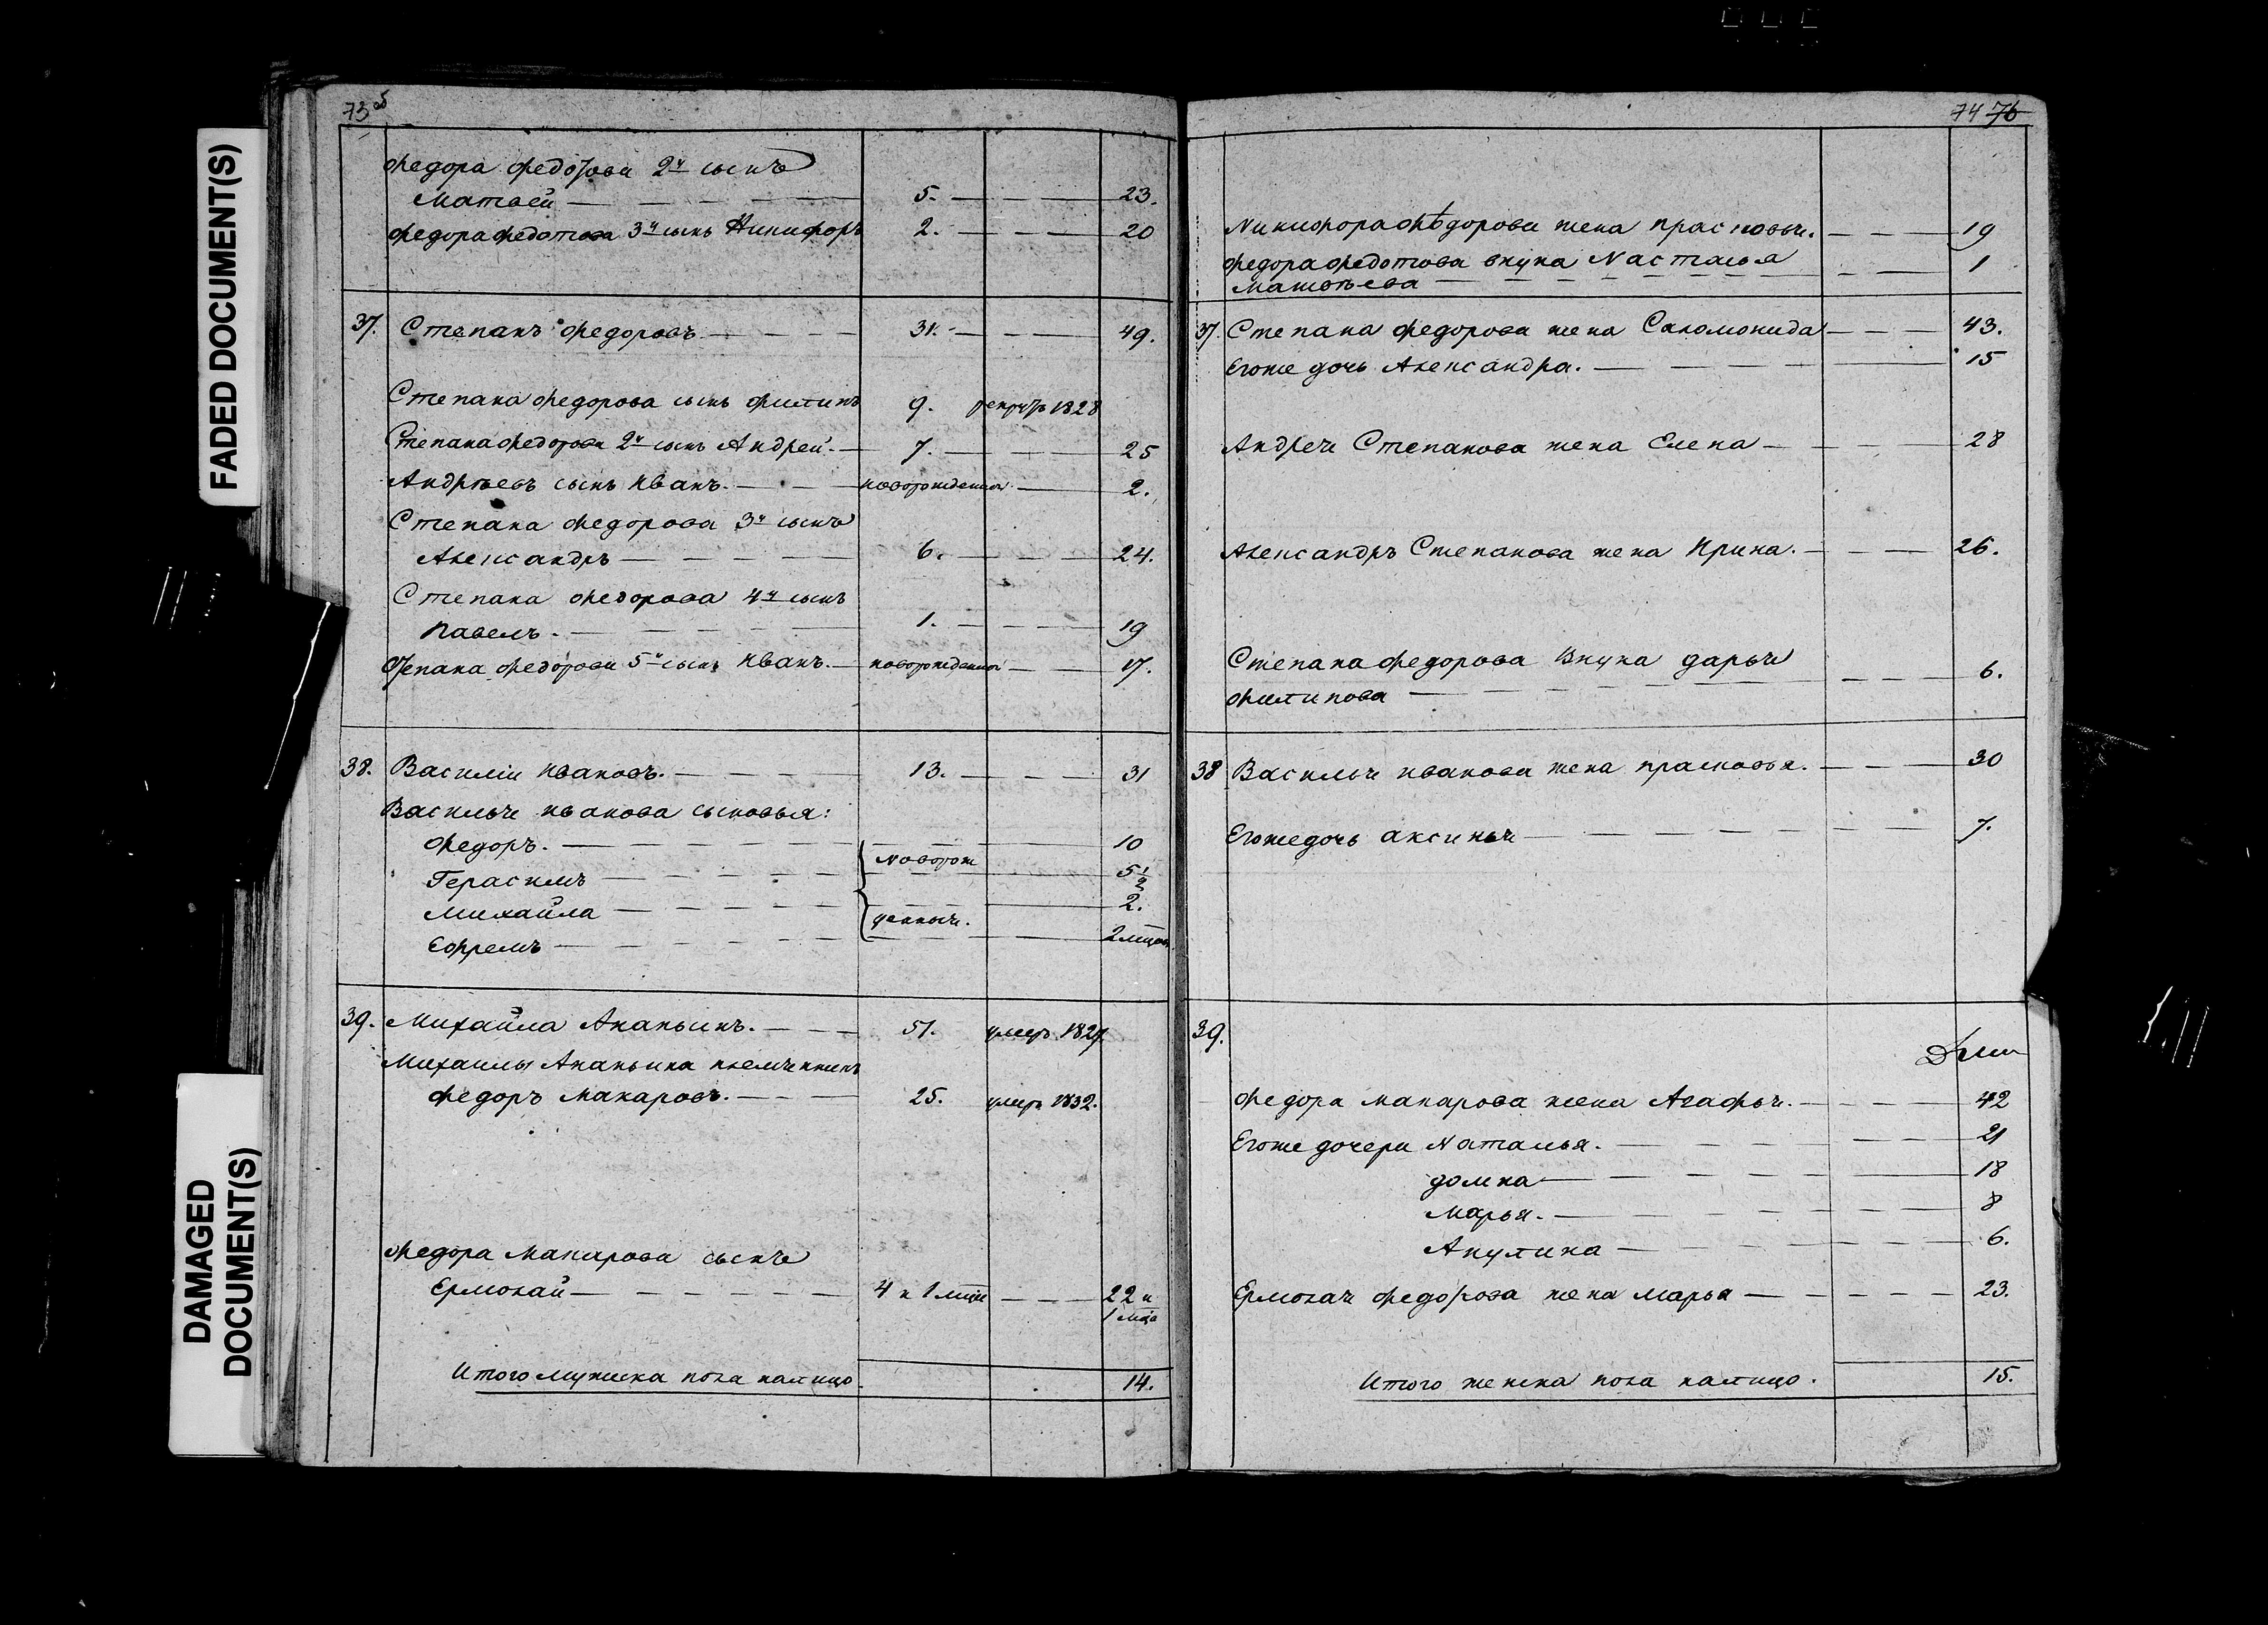 FADED DOCUMENT(S)
DAMAGED DOCUMENT(S)
73 об
Федора Федотова 2й сынъ
Матвей 5. 23.
Федора Федотова 3й сынъ Никифоръ 2. 20
37. Степанъ Федоровъ. 31. 49.
Степана Федорова сынъ Филипъ 9. рекрутъ 1828
Степана Федорова 2й сынъ Андрей. 7. 25
Андрѣевъ сынъ Иванъ. новорожденной 2.
Степана Федорова 3й сынъ
Александръ 6. 24.
Степана Федорова 4й сынъ
Павелъ. 1. 19
Степана Федорова 5й сынъ Иванъ. новорожденной 17.
38. Василій Ивановъ. 13. 31
Василья Иванова сыновья:
Федоръ. 10
Новорож
Герасимъ 5½
Михайла 2.
денныя.
Ефремъ 2 мцовъ
39. Михайла Ананьинъ. 51. умеръ 1827.
Михайлы Ананьина племянникъ
Федоръ Макаровъ. 25. умеръ 1832.
Федора Макарова сынъ
Ермолай 4 и 1 мцъ 22 и
1 мца
Итого мужеска пола налицо. 14.
74 76
Никифора Фѣдорова жена Прасковья. 19
Федора Федотова внука Настасья 1
Матвѣева
37. Степана Федорова жена Саломонида 43.
Егоже дочь Александра. 15
Андрея Степанова жена Елена 28
Александръ Степанова жена Ирина. 26.
Степана Федорова внука Дарья 6.
Филипова
38 Василья Иванова жена Прасковья. 30
Егоже дочь Аксинья 7.
39.
Федора Макарова жена Агафья. 42
Егоже дочери Наталья. 21
Домна 18
Марья. 8
Акулина 6.
Ермолая Федорова жена Марья 23.
Итого женска пола налицо. 15.